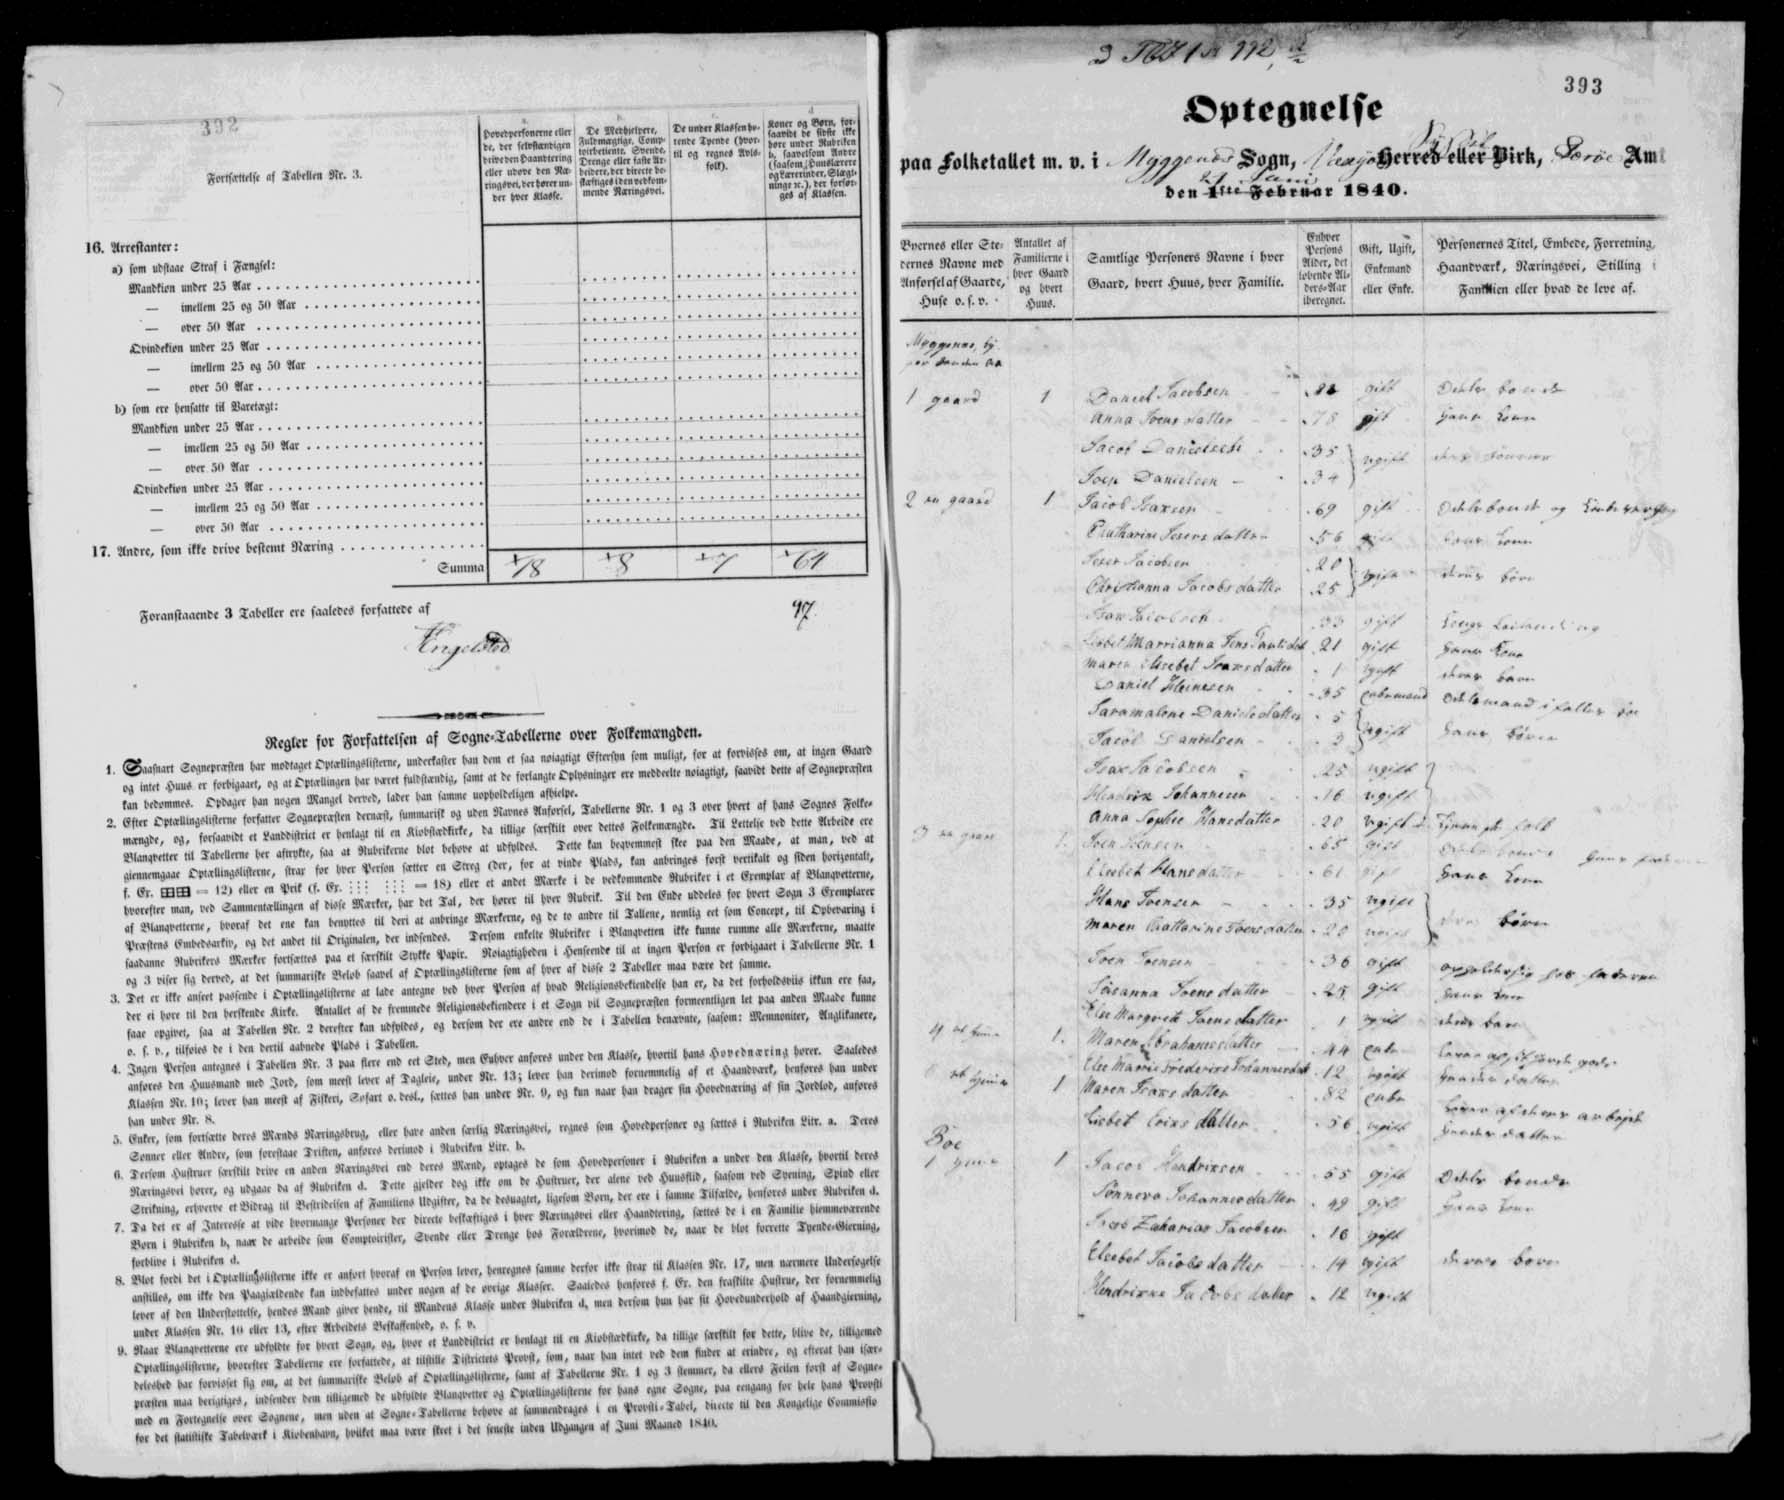 392
Fortsættelse af Tabellen Nr. 3.
a.
Hovedpersonerne eller
de, der selvstændigen
drive den Haandtering
eller udøve den Næ-
ringsvei, der hører un-
der hver Klasse.
b.
De Medhjelpere,
Fuldmægtige, Comp-
toirbetiente, Svende,
Drenge eller faste Ar-
beidere, der directe be-
skæftiges i den vedkom-
mende Næringsvei.
c.
De under Klassen hø-
rende Tyende (hvor-
til og regnes Avls-
folk).
d.
Koner og Børn, for-
saavidt de sidste ikke
høre under Rubriken
b, saavelsom Andre
(saasom Huuslærere
og Lærerinder, Slægt-
ninge ɔc.), der forsør-
ges af Klassen.
16. Arrestanter:
a) som udstaae Straf i Fængsel:
Mandkiøn under 25 Aar
— imellem 25 og 50 Aar
— over 50 Aar
Qvindekiøn under 25 Aar
— imellem 25 og 50 Aar
— over 50 Aar
b) som ere hensatte til Varetægt:
Mandkiøn under 25 Aar
— imellem 25 og 50 Aar
— over 50 Aar
Qvindekiøn under 25 Aar
— imellem 25 og 50 Aar
— over 50 Aar
17. Andre, som ikke drive bestemt Næring
Summa 18 8 7 64
Foranstaaende 3 Tabeller ere saaledes forfattede af 97.
Engelsted
Regler for Forfattelsen af Sogne-Tabellerne over Folkemængden.
1. Saasnart Sognepræsten har modtaget Optællingslisterne, underkaster han dem et saa nøiagtigt Eftersyn som muligt, for at forvisses om, at ingen Gaard
og intet Huus er forbigaaet, og at Optællingen har været fuldstændig, samt at de forlangte Oplysninger ere meddeelte nøiagtigt, saavidt dette af Sognepræsten
kan bedømmes. Opdager han nogen Mangel derved, lader han samme uopholdeligen afhielpe.
2. Efter Optællingslisterne forfatter Sognepræsten dernæst, summarisk og uden Navnes Anførsel, Tabellerne Nr. 1 og 3 over hvert af hans Sognes Folke-
mængde, og, forsaavidt et Landdistrict er henlagt til en Kiøbstædkirke, da tillige særskilt over dettes Folkemængde. Til Lettelse ved dette Arbeide ere
Blanqvetter til Tabellerne her aftrykte, saa at Rubrikerne blot behøve at udfyldes. Dette kan beqvemmest skee paa den Maade, at man, ved at
giennemgaae Optællingslisterne, strax for hver Person sætter en Streg (der, for at vinde Plads, kan anbringes først vertikalt og siden horizontalt,
f. Ex. ⊞⊞ = 12) eller en Prik (f. Ex. ⋮⋮⋮ ⋮⋮⋮ = 18) eller et andet Mærke i de vedkommende Rubriker i et Exemplar af Blanqvetterne,
hvorefter man, ved Sammentællingen af disse Mærker, har det Tal, der hører til hver Rubrik. Til den Ende uddeles for hvert Sogn 3 Exemplarer
af Blanqvetterne, hvoraf det ene kan benyttes til deri at anbringe Mærkerne, og de to andre til Tallene, nemlig eet som Concept, til Opbevaring i
Præstens Embedsarkiv, og det andet til Originalen, der indsendes. Dersom enkelte Rubriker i Blanqvetten ikke kunne rumme alle Mærkerne, maatte
saadanne Rubrikers Mærker fortsættes paa et særskilt Stykke Papir. Nøiagtigheden i Henseende til at ingen Person er forbigaaet i Tabellerne Nr. 1
og 3 viser sig derved, at det summariske Beløb saavel af Optællingslisterne som af hver af disse 2 Tabeller maa være det samme.
3. Det er ikke anseet passende i Optællingslisterne at lade antegne ved hver Person af hvad Religionsbekiendelse han er, da det forholdsviis ikkun ere faa,
der ei høre til den herskende Kirke. Antallet af de fremmede Religionsbekiendere i et Sogn vil Sognepræsten formeentligen let paa anden Maade kunne
faae opgivet, saa at Tabellen Nr. 2 derefter kan udfyldes, og dersom der ere andre end de i Tabellen benævnte, saasom: Memnoniter, Anglikanere,
o. s. v., tilføies de i den dertil aabnede Plads i Tabellen.
4. Ingen Person antegnes i Tabellen Nr. 3 paa flere end eet Sted, men Enhver anføres under den Klasse, hvortil hans Hovednæring hører. Saaledes
anføres den Huusmand med Jord, som meest lever af Dagleie, under Nr. 13; lever han derimod fornemmelig af et Haandværk, henføres han under
Klassen Nr. 10; lever han meest af Fiskeri, Søfart o. desl., sættes han under Nr. 9, og kun naar han drager sin Hovednæring af sin Jordlod, anføres
han under Nr. 8.
5. Enker, som fortsætte deres Mænds Næringsbrug, eller have anden særlig Næringsvei, regnes som Hovedpersoner og sættes i Rubriken Litr. a. Deres
Sønner eller Andre, som forestaae Driften, anføres derimod i Rubriken Litr. b.
6. Dersom Hustruer særskilt drive en anden Næringsvei end deres Mænd, optages de som Hovedpersoner i Rubriken a under den Klasse, hvortil deres
Næringsvei hører, og udgaae da af Rubriken d. Dette gjelder dog ikke om de Hustruer, der alene ved Huusflid, saasom ved Syening, Spind eller
Strikning, erhverve et Bidrag til Bestridelsen af Familiens Udgifter, da de desuagtet, ligesom Børn, der ere i samme Tilfælde, henføres under Rubriken d.
7. Da det er af Interesse at vide hvormange Personer der directe beskæftiges i hver Næringsvei eller Haandtering, sættes de i en Familie hiemmeværende
Børn i Rubriken b, naar de arbeide som Comptoirister, Svende eller Drenge hos Forældrene, hvorimod de, naar de blot forrette Tyende-Gierning,
forblive i Rubriken d.
8. Blot fordi det i Optællingslisterne ikke er anført hvoraf en Person lever, henregnes samme derfor ikke strax til Klassen Nr. 17, men nærmere Undersøgelse
anstilles, om ikke den Paagiældende kan indbefattes under nogen af de øvrige Klasser. Saaledes henføres f. Ex. den fraskilte Hustrue, der fornemmelig
lever af den Understøttelse, hendes Mand giver hende, til Mandens Klasse under Rubriken d, men dersom hun har sit Hovedunderhold af Haandgierning,
under Klassen Nr. 10 eller 13, efter Arbeidets Beskaffenhed, o. s. v.
9. Naar Blanqvetterne ere udfyldte for hvert Sogn, og, hvor et Landdistrict er henlagt til en Kiøbstædkirke, da tillige særskilt for dette, blive de, tilligemed
Optællingslisterne, hvorefter Tabellerne ere forfattede, at tilstille Districtets Provst, som, naar han intet ved dem finder at erindre, og efterat han især-
deleshed har forvisset sig om, at det summariske Beløb af Optællingslisterne, samt af Tabellerne Nr. 1 og 3 stemmer, da ellers Feilen først af Sogne-
præsten maa berigtiges, indsender dem tilligemed de udfyldte Blanqvetter og Optællingslisterne for hans egne Sogne, paa eengang for hele hans Provsti
med en Fortegnelse over Sognene, men uden at Sogne-Tabellerne behøve at sammendrages i en Provsti-Tabel, directe til den Kongelige Commissio
for det statistiske Tabelværk i Kiøbenhavn, hvilket maa være skeet i det seneste inden Udgangen af Juni Maaned 1840.
393
Optegnelse
paa Folketallet m. v. i Myggenæs Sogn, Vaagøe Herred eller Birk, Færøe Amt
21 Juni
den 1ste Februar 1840.
Byernes eller Ste-
dernes Navne med
Anførsel af Gaarde,
Huse o. s. v.
Antallet af
Familierne i
hver Gaard
og hvert
Huus.
Samtlige Personers Navne i hver
Gaard, hvert Huus, hver Familie.
Enhver
Persons
Alder, det
løbende Al-
ders-Aar
iberegnet.
Gift, Ugift,
Enkemand
eller Enke.
Personernes Titel, Embede, Forretning,
Haandværk, Næringsvei, Stilling i
Familien eller hvad de leve af.
Myggenæs, by
1 gaard 1 Daniel Jacobsen gift Odels bonde
Anna Joensdatter 78 gift hans kone
Jacob Danielsen 35 ugift
Joen Danielsen 34
2 en gaard 1 Jacob Isaxsen 69 gift Odelsbonde og
Chatharine Jesersdatter 56 gift hans kone
Jeser Jacobsen 20 ugift deres børn
Christianna Jacobsdatter 25
Isax Jacobsen 33 gift
Lisbet Marrianna 21 gift hans kone
Maren Elsebet Isaxsdatter 1 ugift deres barn
Daniel Heinesen 35 enkemand
Saramalene Danielsdatter 5 ugift hans børn
Jacob Danielsen 3
Isax Jacobsen 25 ugift
Hendrix Johannesen 16 ugift
Anna Sophie Hansdatter 20 ugift
3 en gaard 1. Joen Joensen 65 gift
Elsebet Hansdatter 61 gift hans kone
Hans Joensen 35 ugift
Maren Chattarine Joensdatter 20 ugift børn
Joen Joensen 36 gift
Susanna Joensdatter 25 gift hans kone
Else Margrete Joensdatter 1 ugift deres barn
4 et huus 1. Maren Abrahamsdatter 44 enke
Else Marrie Frederixe Johannesdat 12 ugift hendes datter
1 Maren Isaxsdatter 82 enke
Lisbet Erixsdatter 56 ugift hendes datter
Bøe
1 1 Jacob Hendrixsen 55 gift Odels bonde
Sönneva Johannesdatter 49 gift hans kone
Zakarias Jacobsen 16 ugift
Elsebet Jacobsdatter 14 ugift deres børn
Hendrixne Jacobsdatter 12 ugift